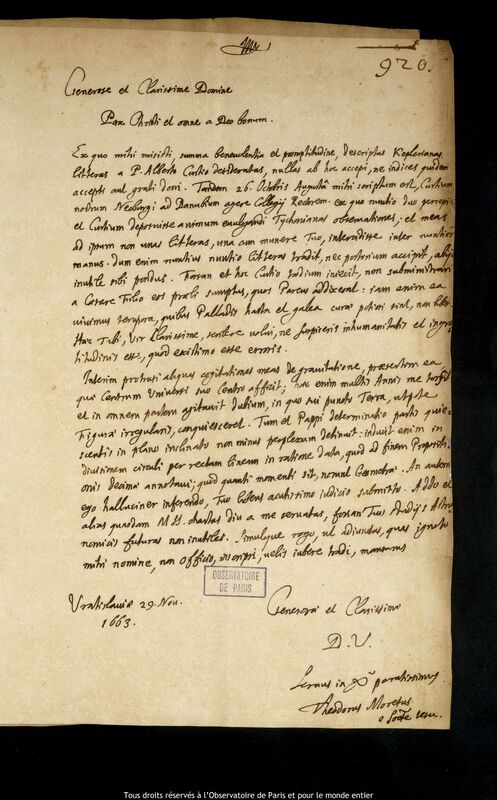 920.
Generose et Clarissime Domine
Pax Christi et omne a Deo bonum.
Ex quo mihi misisti, summa benevolentia et promptitudine, descriptas Keplerianas
litteras a P. Alberto Curtio desideratas, nullas ab hoc accepi, ne indices quidem
accepti aut grati doni. Tandem 26. Octobris Augustâ mihi scriptum est, Curtium
nostrum Neoburgi ad Danubium agere Collegij Rectorem. ex quo nuntio duo percepi,
et Curtium deposuisse animum evulgandi Tychonianas observationes; et meas
ad ipsum non unas litteras, una cum munere Tuo, intercidisse inter nuntiorum
manus. dum enim nuntius nuntio litteras tradit, nec portorium accipit, abijcit
inutile sibi pondus. Forsan et hoc Curtio tædium iniecit, non subministrari
a Cæsare Filio eos prœli sumptus, quos Parens addixerat: iam enim ea
vivimus tempora, quibus Palladis hasta et galea curæ potius sint, non libri.
Hæc Tibi, Vir Clarissime, scribere volui, ne suspiceris inhumanitatis et ingra-
titudinis esse, quod existimo esse erroris.
Interim protrusi aliquas cogitationes meas de gravitatione, præsertim ea
quæ Centrum Universi suo Centro afficit; hæc enim multis Annis me torsit
et in omnem partem agitavit dubium, in quo sui puncto Terra, utpote
Figuræ irregularis, conquiesceret. Tum et Pappi determinatio partis quie-
scentis in plano inclinato non minus perplexum detinuit: induxit enim in
divisionem circuli per rectam lineam in ratione data, quod ad finem Propositi-
onis decimæ annotavi; quod quanti momenti sit, norunt Geometræ. An autem
ego hallaciner inferendo, Tuo litens acutissimo iudicio submitto. Addo et
alias quasdam M.S. chartas diu a me servatas, forsan Tuis studijs Astro-
nomicis futuras non inutiles. Simulque rogo, ut adiunctas, quas ignoto
mihi nomine, non officio, inscripsi, velis iubere tradi, mansurus
OBSERVATOIRE
DE PARIS
Vratislaviæ 29. Nov.
1663.
Generosæ et Clarissimæ
D. V.
Servus in Xo paratissimus
Theodorus Moretus
e Socte Iesu.
Tous droits réservés à l'Observatoire de Paris et pour le monde entier